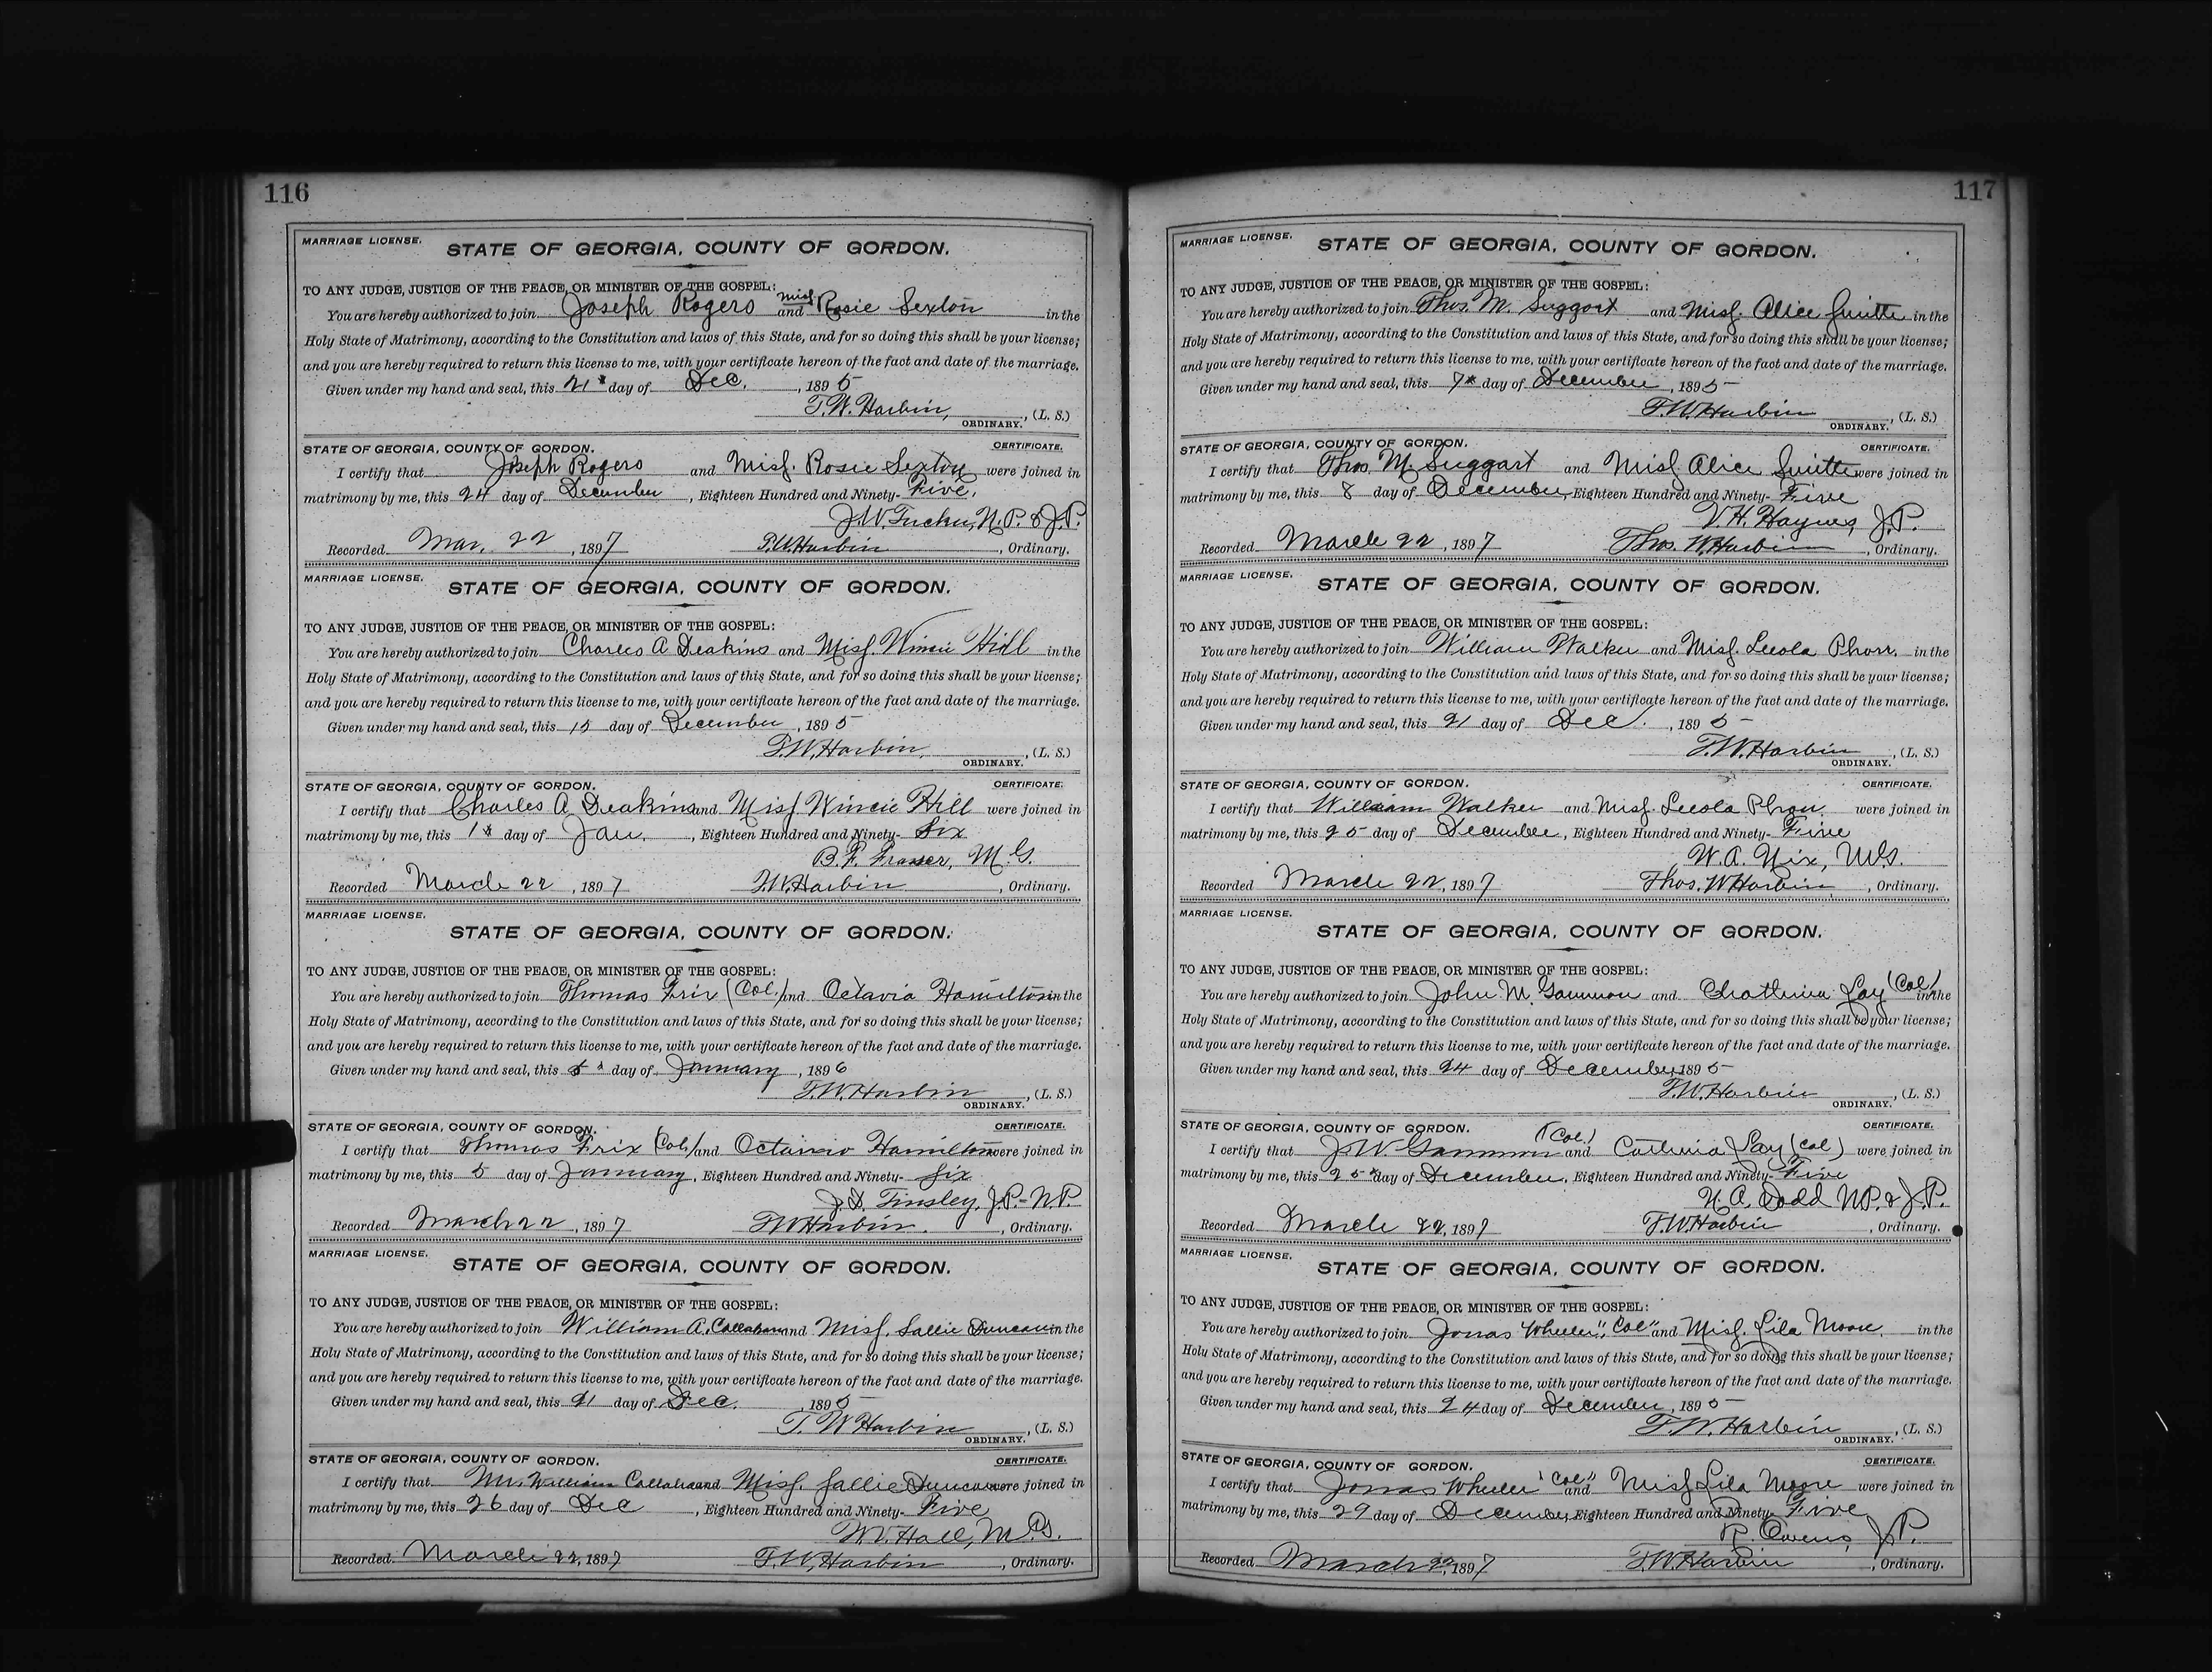 116
MARRIAGE LICENSE.
STATE OF GEORGIA, COUNTY OF GORDON.
TO ANY JUDGE, JUSTICE OF THE PEACE, OR MINISTER OF THE GOSPEL:
You are hereby authorized to join Joseph Rogers and Miss Rosie Sexton in the
Holy State of Matrimony, according to the Constitution and laws of this State, and for so doing this shall be your license;
and you are hereby required to return this license to me, with your certificate hereon of the fact and date of the marriage.
Given under my hand and seal, this 21st day of Dec. , 1895
T.W. Harbin, , (L. S.)
ORDINARY.
STATE OF GEORGIA, COUNTY OF GORDON. CERTIFICATE.
I certify that Joseph Rogers and Miss. Rosie Sexton were joined in
matrimony by me, this 24 day of December , Eighteen Hundred and Ninety- Five.
J.W. Tucker, N.P. & J.P.
Recorded Mar. 22 , 1897 T.W. Harbin , Ordinary.
MARRIAGE LICENSE.
STATE OF GEORGIA, COUNTY OF GORDON.
TO ANY JUDGE, JUSTICE OF THE PEACE, OR MINISTER OF THE GOSPEL:
You are hereby authorized to join Charles A Deakins and Miss. Winnie Hill in the
Holy State of Matrimony, according to the Constitution and laws of this State, and for so doing this shall be your license;
and you are hereby required to return this license to me, with your certificate hereon of the fact and date of the marriage.
Given under my hand and seal, this 15 day of December , 1895
T.W. Harbin, , (L. S.)
ORDINARY.
STATE OF GEORGIA, COUNTY OF GORDON. CERTIFICATE.
I certify that Charles A Deakins and Miss Winnie Hill were joined in
matrimony by me, this 1st day of Jan. , Eighteen Hundred and Ninety- Six
B.F. Fraser, M.G.
Recorded March 22 , 1897 T.W. Harbin , Ordinary.
MARRIAGE LICENSE.
STATE OF GEORGIA, COUNTY OF GORDON.
TO ANY JUDGE, JUSTICE OF THE PEACE, OR MINISTER OF THE GOSPEL:
You are hereby authorized to join Thomas Frix (Col.) and Octavia Hamilton in the
Holy State of Matrimony, according to the Constitution and laws of this State, and for so doing this shall be your license;
and you are hereby required to return this license to me, with your certificate hereon of the fact and date of the marriage.
Given under my hand and seal, this day of January , 1896
T.W. Harbin , (L. S.)
ORDINARY.
STATE OF GEORGIA, COUNTY OF GORDON. CERTIFICATE.
I certify that Thomas Frix (Col.) and Octavia Hamilton were joined in
matrimony by me, this 5 day of January , Eighteen Hundred and Ninety- Six
J.D. Tinsley, J.P.-N.P.
Recorded March 22 , 1897 T.W. Harbin. , Ordinary.
MARRIAGE LICENSE.
STATE OF GEORGIA, COUNTY OF GORDON.
TO ANY JUDGE, JUSTICE OF THE PEACE, OR MINISTER OF THE GOSPEL:
You are hereby authorized to join William A. Callahan and Miss. Sallie Duncan in the
Holy State of Matrimony, according to the Constitution and laws of this State, and for so doing this shall be your license;
and you are hereby required to return this license to me, with your certificate hereon of the fact and date of the marriage.
Given under my hand and seal, this 21 day of Dec. , 1895
T. W Harbin , (L. S.)
ORDINARY.
STATE OF GEORGIA, COUNTY OF GORDON. CERTIFICATE.
I certify that Mr. William Callahan and Miss. Sallie Duncan were joined in
matrimony by me, this 26 day of Dec , Eighteen Hundred and Ninety- Five
W.V. Hall, M.G.
Recorded March 22, 1897 T.W. Harbin , Ordinary.
117
MARRIAGE LICENSE.
STATE OF GEORGIA, COUNTY OF GORDON.
TO ANY JUDGE, JUSTICE OF THE PEACE, OR MINISTER OF THE GOSPEL:
You are hereby authorized to join Thos. M. Suggart and Miss. Alice in the
Holy State of Matrimony, according to the Constitution and laws of this State, and for so doing this shall be your license;
and you are hereby required to return this license to me, with your certificate hereon of the fact and date of the marriage.
Given under my hand and seal, this 7th day of December , 1895
T.W. Harbin , (L. S.)
ORDINARY.
STATE OF GEORGIA, COUNTY OF GORDON. CERTIFICATE.
I certify that Thos. M. Suggart and Miss Alice were joined in
matrimony by me, this 8 day of December, Eighteen Hundred and Ninety- Five
V.H. Haynes, J.P.
Recorded March 22 , 1897 Thos. W. Harbin , Ordinary.
MARRIAGE LICENSE.
STATE OF GEORGIA, COUNTY OF GORDON.
TO ANY JUDGE, JUSTICE OF THE PEACE, OR MINISTER OF THE GOSPEL:
You are hereby authorized to join William Walker and Miss. Leola in the
Holy State of Matrimony, according to the Constitution and laws of this State, and for so doing this shall be your license;
and you are hereby required to return this license to me, with your certificate hereon of the fact and date of the marriage.
Given under my hand and seal, this 21 day of Dec. , 1895
T.W. Harbin , (L. S.)
ORDINARY.
STATE OF GEORGIA, COUNTY OF GORDON. CERTIFICATE.
I certify that William Walker and Miss. Leola were joined in
matrimony by me, this 25 day of December, Eighteen Hundred and Ninety- Five
W.A. Nix, M.G.
Recorded March 22, 1897 Thos. W Harbin , Ordinary.
MARRIAGE LICENSE.
STATE OF GEORGIA, COUNTY OF GORDON.
TO ANY JUDGE, JUSTICE OF THE PEACE, OR MINISTER OF THE GOSPEL:
You are hereby authorized to join John M. Gammon and Lay (Col) in the
Holy State of Matrimony, according to the Constitution and laws of this State, and for so doing this shall be your license;
and you are hereby required to return this license to me, with your certificate hereon of the fact and date of the marriage.
Given under my hand and seal, this 24 day of December, 1895
T.W. Harbin , (L. S.)
ORDINARY.
STATE OF GEORGIA, COUNTY OF GORDON. CERTIFICATE.
I certify that J.W. Gammon (Col.) and Lay (Col) were joined in
matrimony by me, this 25th day of December, Eighteen Hundred and Ninety- Five
H.A. Dodd N.P. & J.P.
Recorded March 22, 1897 T.W. Harbin , Ordinary.
MARRIAGE LICENSE.
STATE OF GEORGIA, COUNTY OF GORDON.
TO ANY JUDGE, JUSTICE OF THE PEACE, OR MINISTER OF THE GOSPEL:
You are hereby authorized to join Jonas Wheeler "Col" and Miss. Lila Moore. in the
Holy State of Matrimony, according to the Constitution and laws of this State, and for so doing this shall be your license;
and you are hereby required to return this license to me, with your certificate hereon of the fact and date of the marriage.
Given under my hand and seal, this 24 day of December, 1895
T.W. Harbin , (L. S.)
ORDINARY.
STATE OF GEORGIA, COUNTY OF GORDON. CERTIFICATE.
I certify that Jonas Wheeler "Col" and Miss Lila Moore were joined in
matrimony by me, this 29 day of December, Eighteen Hundred and Ninety- Five
R. Owens, J.P.
Recorded March 22, 1897 T.W. Harbin , Ordinary.